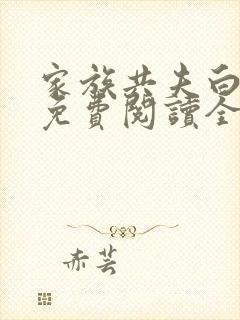 家族共夫白
免費閱讀全
赤芸